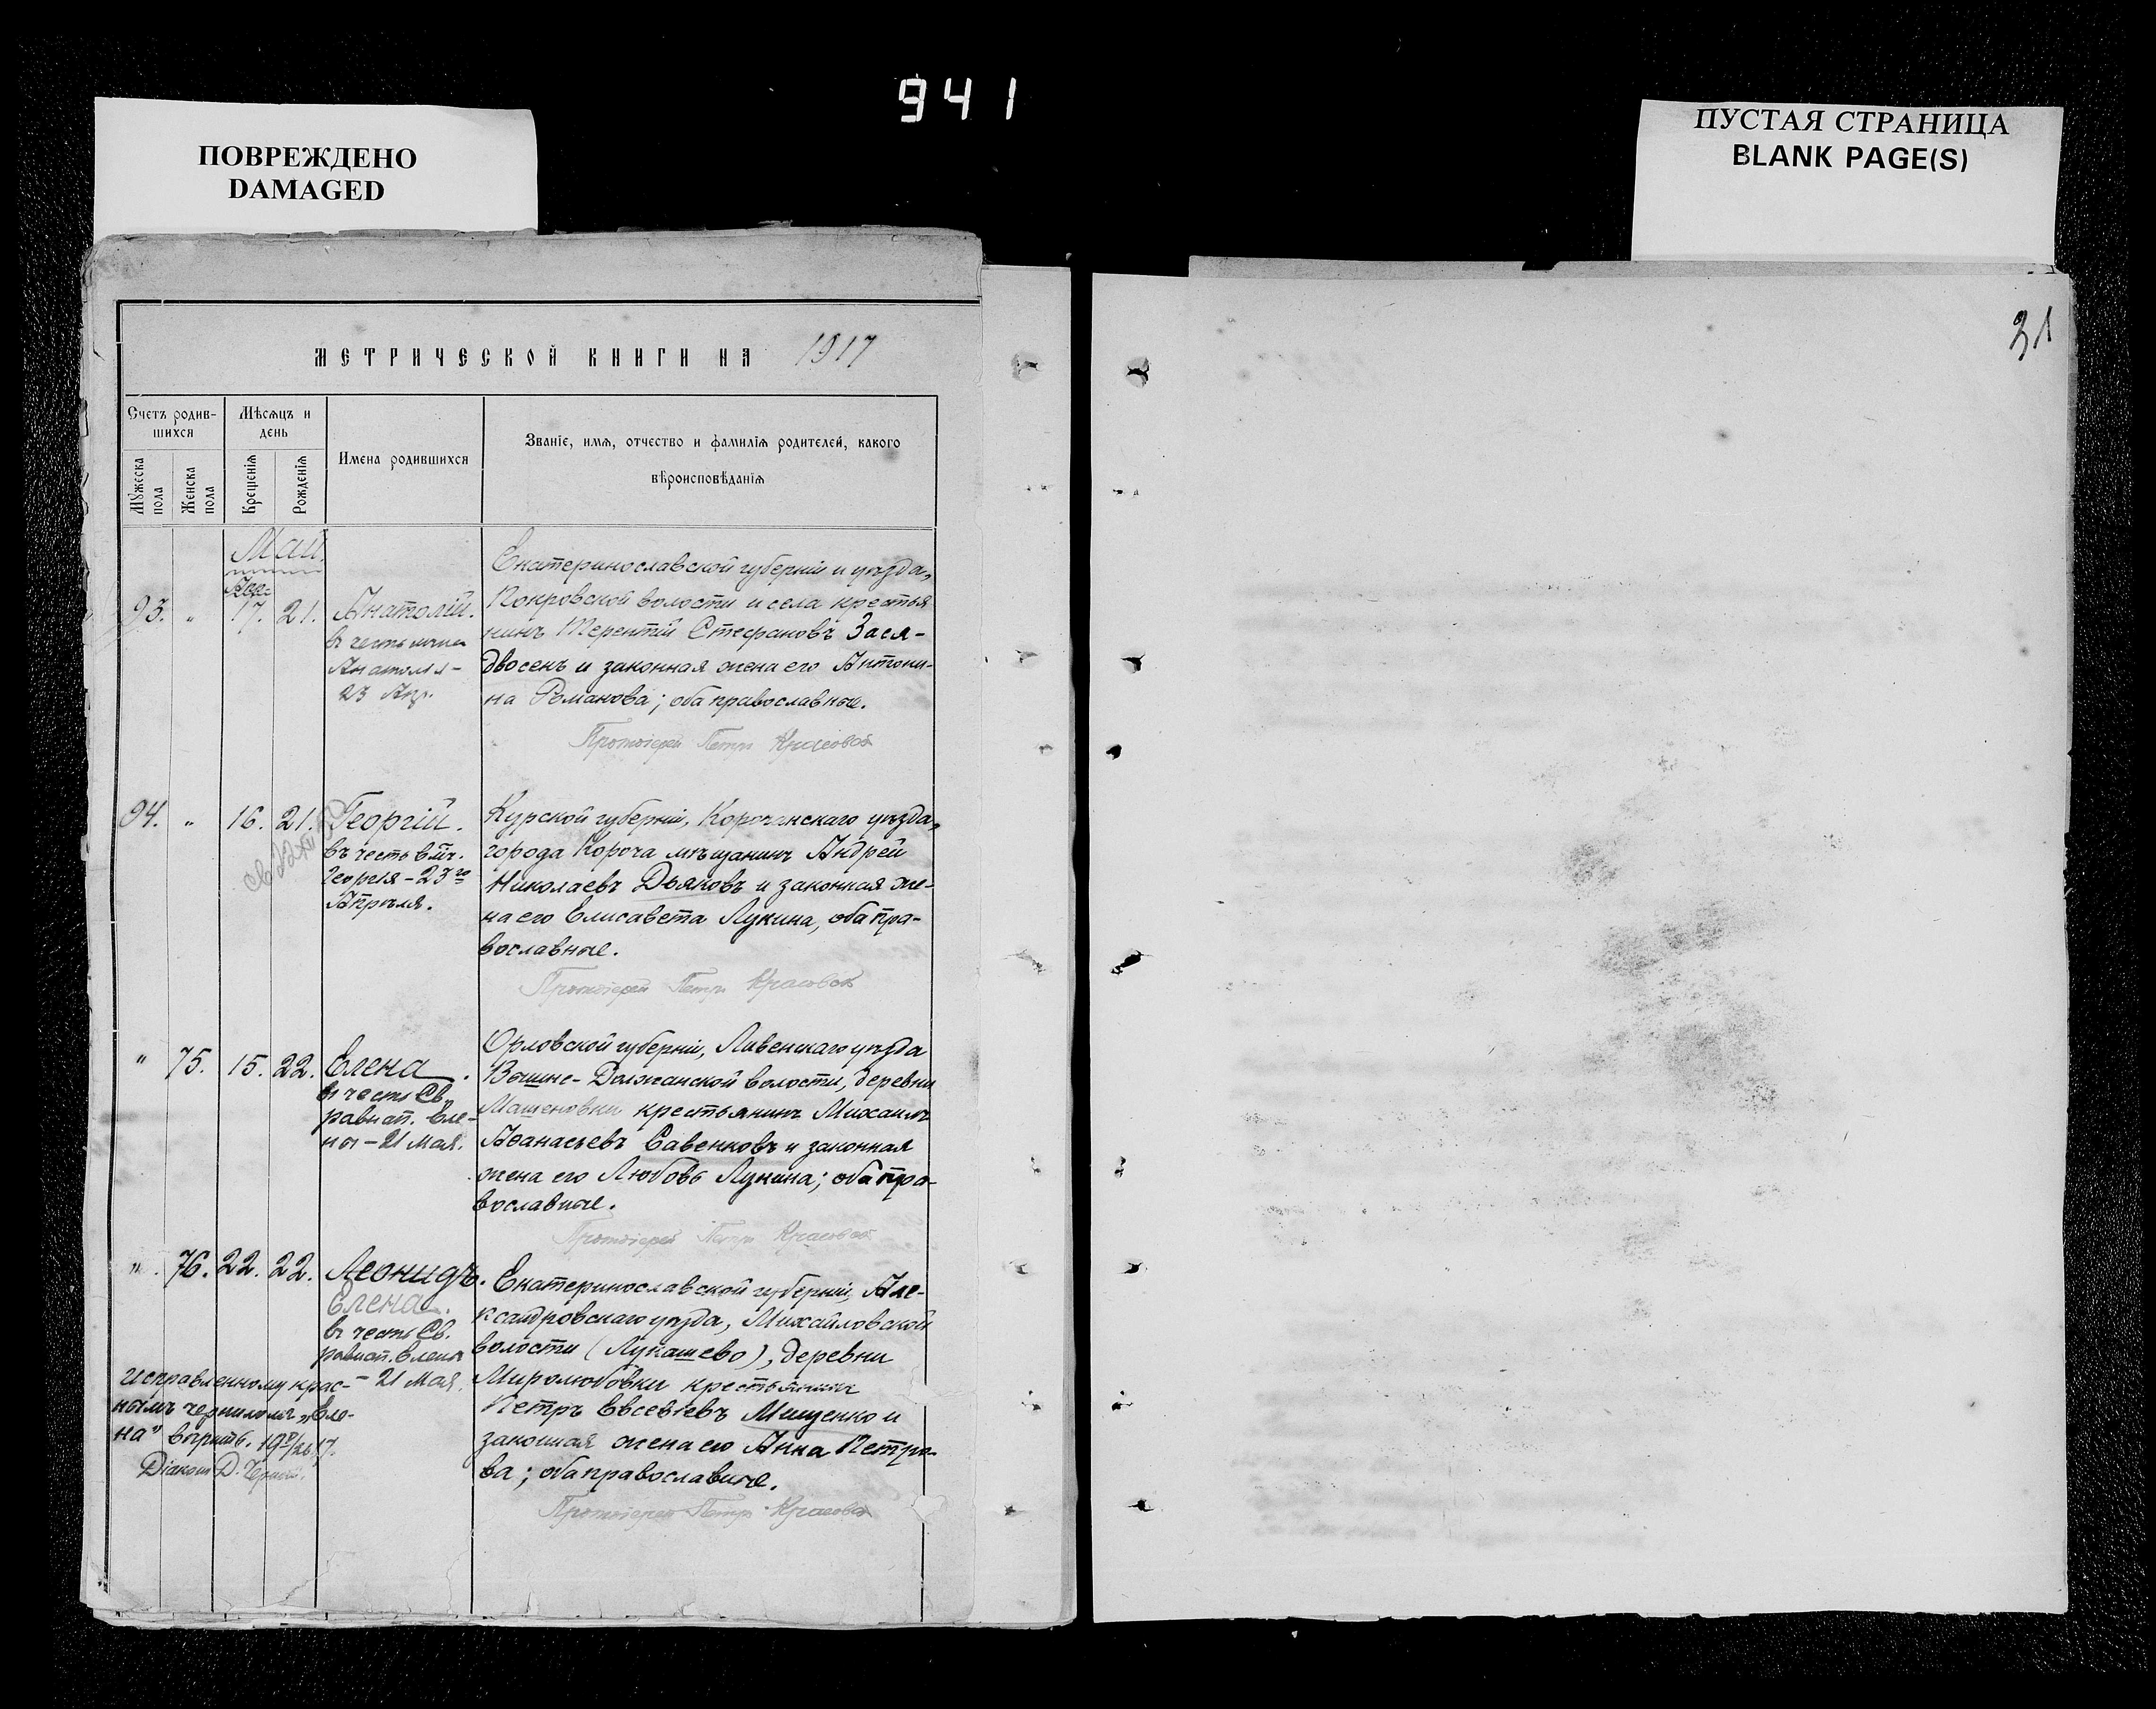 941
ПОВРЕЖДЕНО
DAMAGED
ПУСТАЯ СТРАНИЦА
BLANK PAGE(S)
31
МЕТРИЧЕСКОЙ КНИГИ НА 1917
Счетъ родив-
шихся
Мѣсяцъ и
день
Имена родившихся
Званіе, имя, отчество и фамилія родителей, какого
вѣроисповѣданія
Мужеска пола
Женска пола
Крещенія
Рожденія
Май.
Апр.
93. " 17. 21. Анатолій.
въ честь
Анатолія -
23 Апр.
Екатеринославской губерніи и уѣзда,
Покровской волости и села крестья
нинъ Терентій Стефановъ Зася-
двосенъ и законная жена его Антони-
на Романова; оба православные.
Протоіерей Петръ Красовскій
94. " 16. 21. Георгій.
въ честь Влмч.
Георгія - 23го
Апрѣля.
Курской губерніи, Корочанскаго уѣзда,
города Короча мѣщанинъ Андрей
Николаевъ Дьяковъ и законная же-
на его Елисавета Лукина, оба пра-
вославные.
Протоіерей Петръ Красовскій
" 75. 15. 22. Елена.
въ честь Св.
равноап. Еле-
ны - 21 Мая.
Орловской губерніи, Ливенскаго уѣзда
Вышне-Должанской волости, деревни
Машеновки крестьянинъ Михаилъ
Аѳанасьевъ Савенковъ и законная
жена его Любовь Лукина; оба пра-
вославные.
Протоіерей Петръ Красовскій
" 76. 22. 22. Леонидъ.
Елена.
въ честь Св.
равноап. Елены
- 21 Мая.
Екатеринославской губерніи, Але-
ксандровскаго уѣзда, Михайловской
волости (Лукашево), деревни
Миролюбовки крестьянинъ
Петръ Евсевіевъ Мищенко и
законная жена его Анна Петро-
ва; оба православные.
Протоіерей Петръ Красовскій
Исправленному крас-
нымъ чернилом "Еле-
на" вѣрить.
Діаконъ Д.